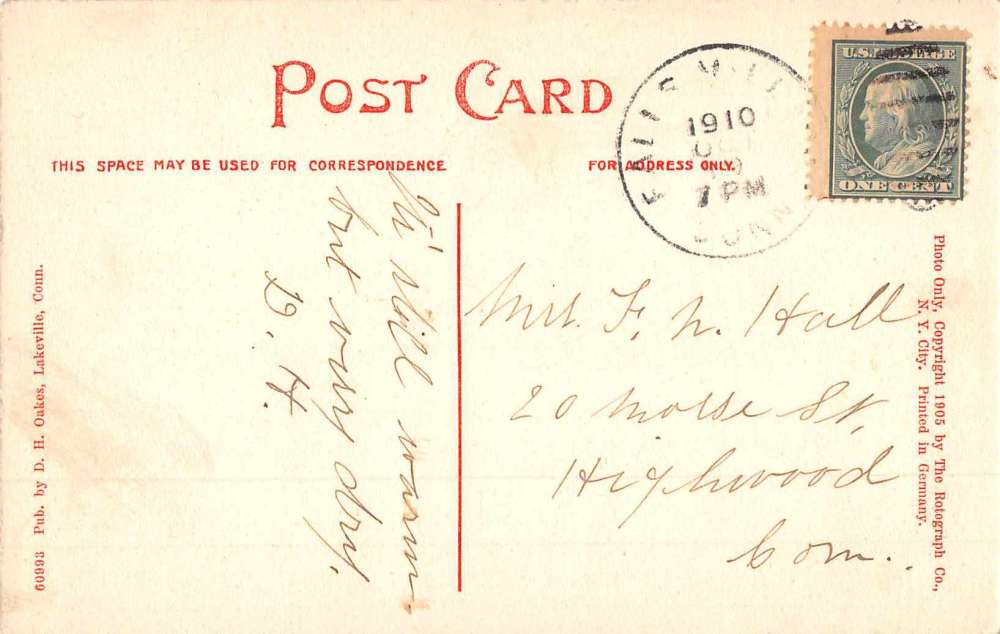 POST CARD
THIS SPACE MAY BE USED FOR CORRESPONDENCE
FOR ADDRESS ONLY.
FALLS VILL
1910
OCT
7 PM
CONN
U.S. POSTAGE
ONE CENT
still warm
but very dry.
D. H.
Mrs. F. N. Hall
20 Morse St,
Highwood
Conn.
60993 Pub. by D. H. Oakes, Lakeville, Conn.
Photo Only, Copyright 1905 by The Rotograph Co.,
N. Y. City. Printed in Germany.